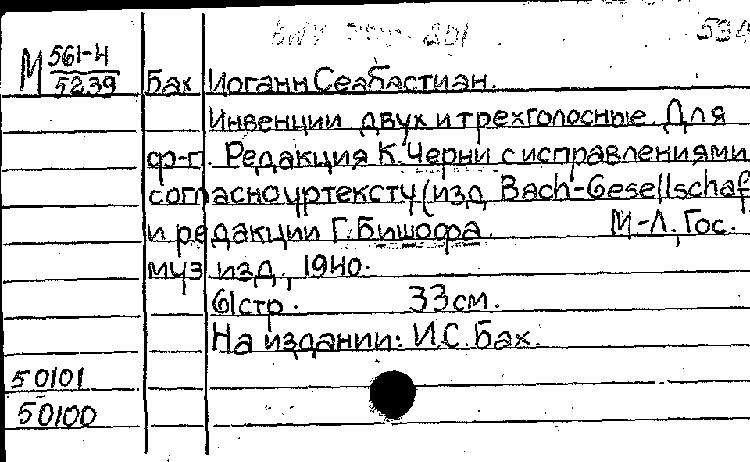 М 561-4
5239
Бах Иоганн Сеабастиан.
Инвенции двух и трехголосные. Для
ф-п. Редакция К. Черни с исправлениями
согласно уртексту (изд. Bach-Gesellschaf
и редакции Г. Бишофа. М-Л, Гос.
муз изд., 1940.
61 стр. 33 см.
На издании: И.С. Бах.
50101
50100